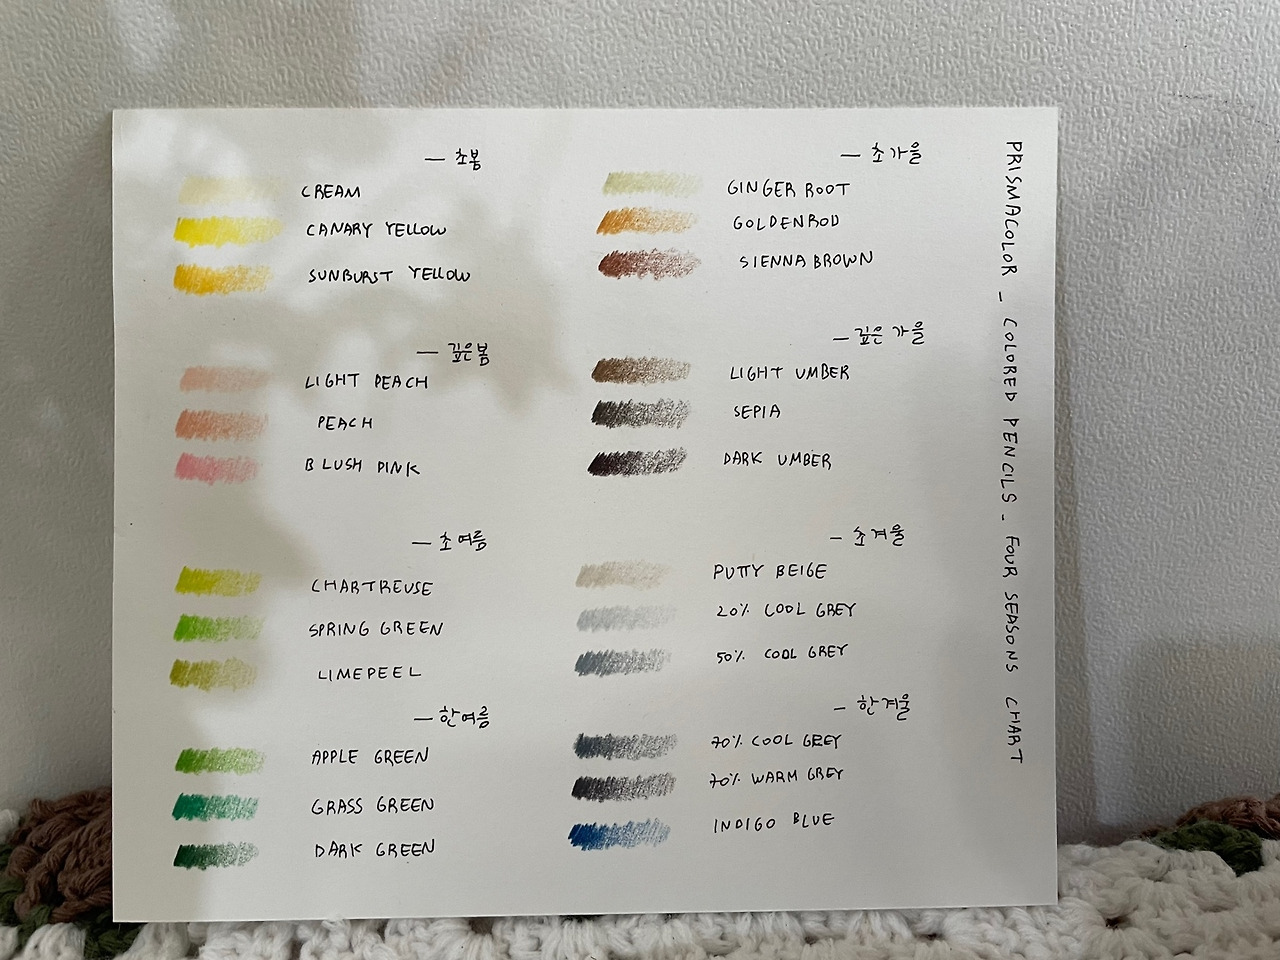 — 초봄
CREAM
CANARY YELLOW
SUNBURST YELLOW
— 깊은봄
LIGHT PEACH
PEACH
BLUSH PINK
— 초여름
CHARTREUSE
SPRING GREEN
LIMEPEEL
— 한여름
APPLE GREEN
GRASS GREEN
DARK GREEN
— 초가을
GINGER ROOT
GOLDENROD
SIENNA BROWN
— 깊은 가을
LIGHT UMBER
SEPIA
DARK UMBER
— 초겨울
PUTTY BEIGE
20% COOL GREY
50% COOL GREY
— 한겨울
70% COOL GREY
70% WARM GREY
INDIGO BLUE
PRISMACOLOR _ COLORED PENCILS - FOUR SEASONS CHART